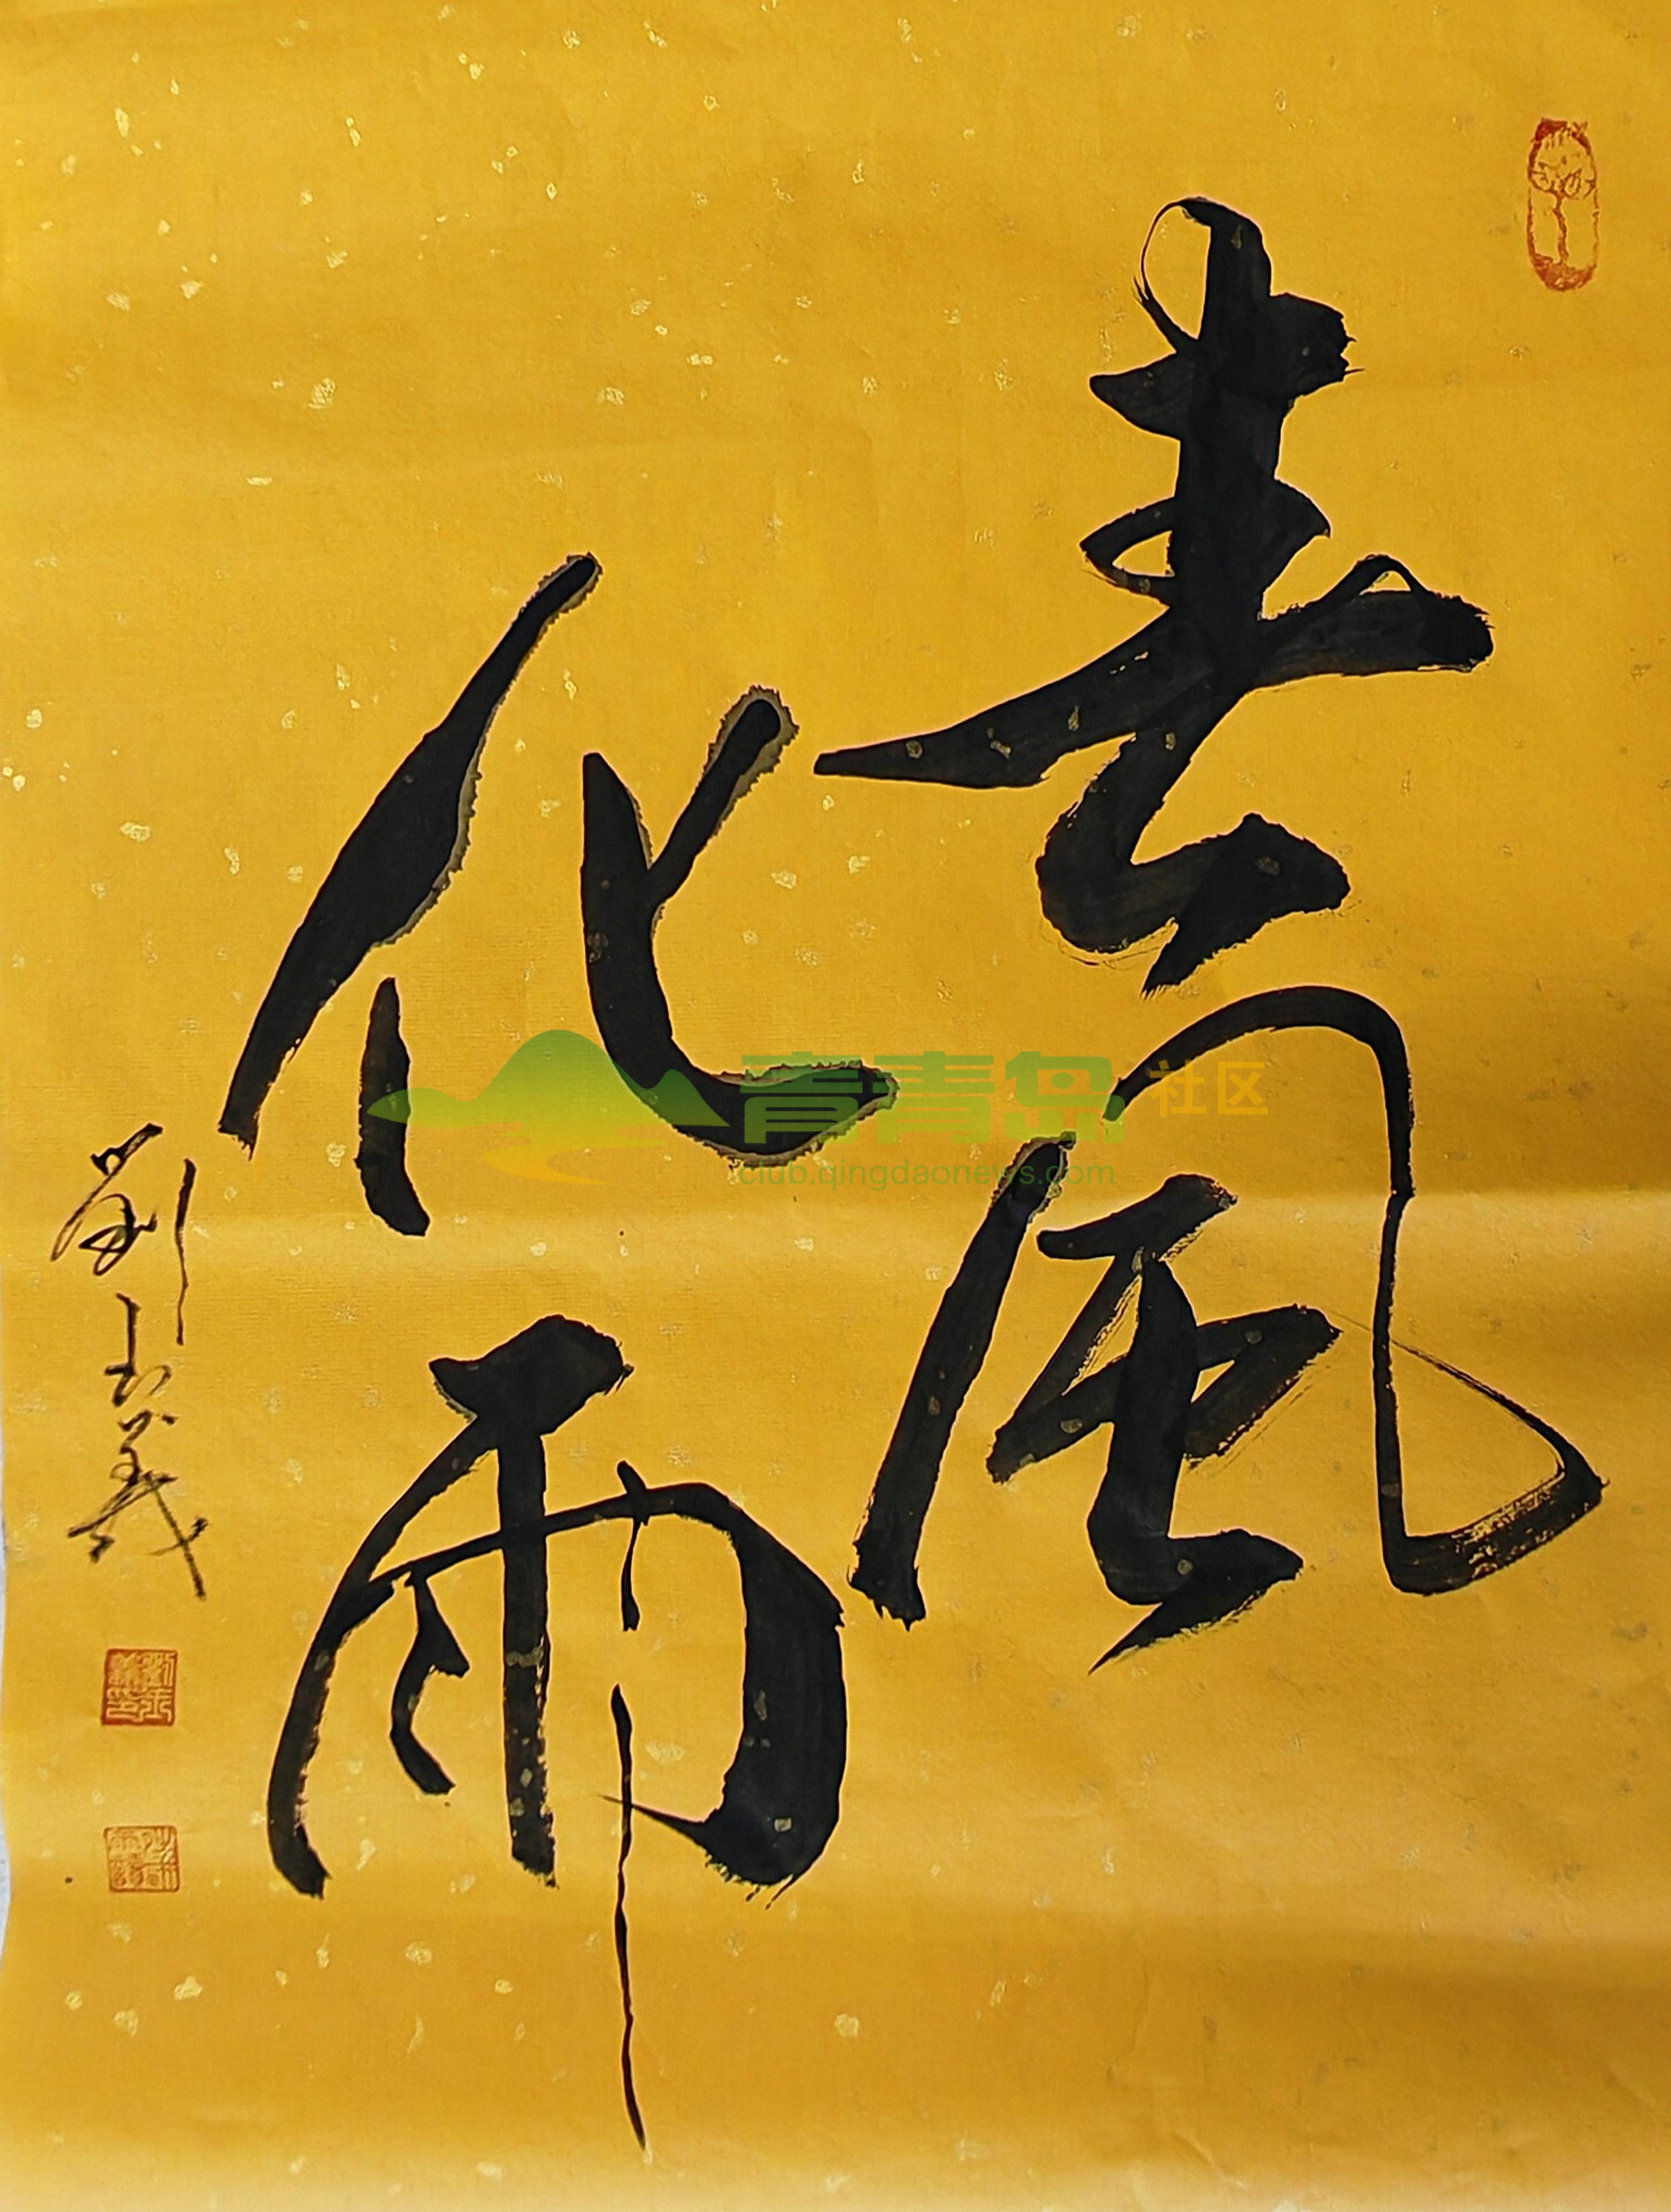 春風
化雨
劉玉義
青青岛 社区
club.qingdaonews.com